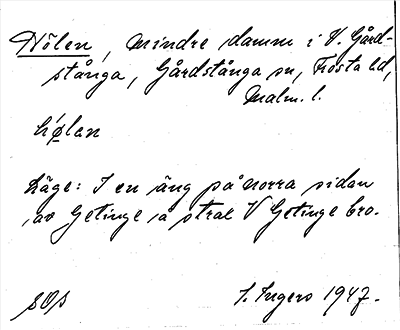 Hölen, mindre damm i V. Gård-
stånga, Gårdstånga sn, Frosta hd,
Malm. l.
hø̀lan
Läge: I en äng på norra sidan
av Getinge å strax V Getinge bro.
I. Ingers 1947.